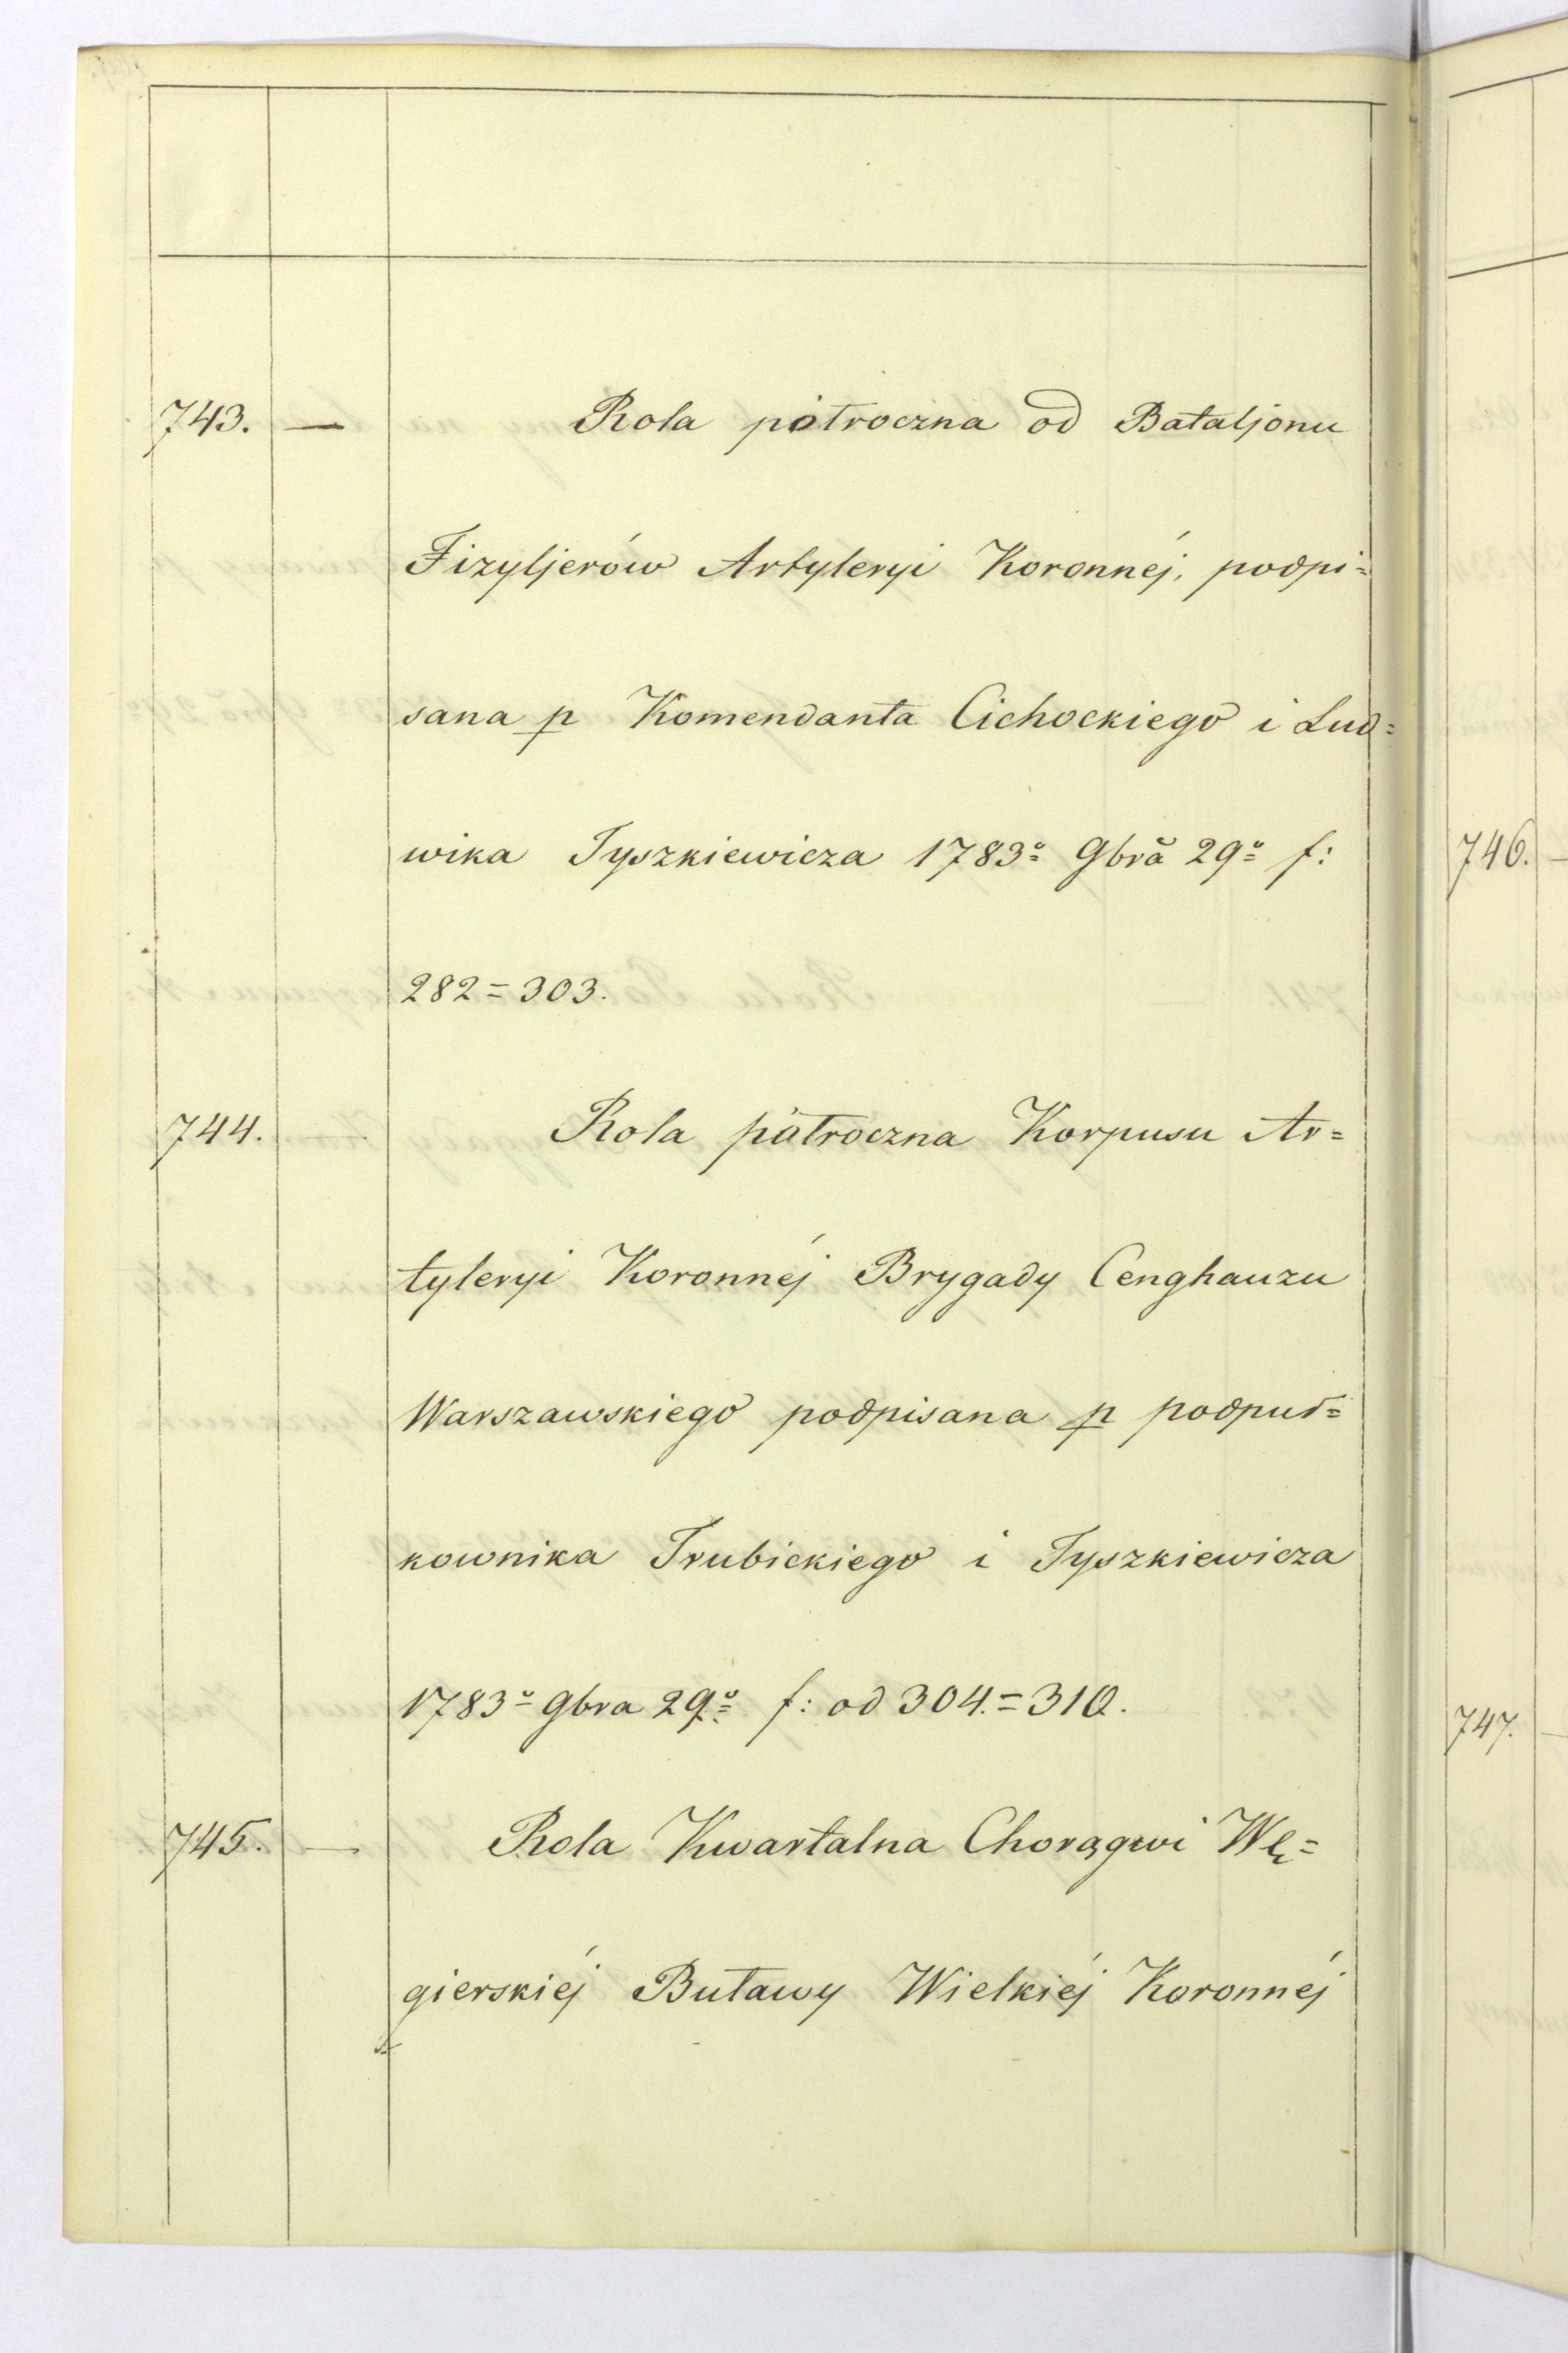 743. — Rola półroczna od Bataljonu
Fizyljerów Artyleryi Koronnéj, podpi=
sana p Komendanta Cichockiego i Lud=
wika Tyszkiewicza 1783º 9bra 29º f:
282=303.
744. — Rola półroczna Korpusu Ar=
tyleryi Koronnéj Brygady Cenghauzu
Warszawskiego podpisana p podpuł=
kownika Trubickiego i Tyszkiewicza
1783º 9bra 29º f: od 304.=310.
745. — Rola Kwartalna Chorągwi Wę=
gierskiéj Buławy Wielkiéj Koronnéj
746. —
747. —